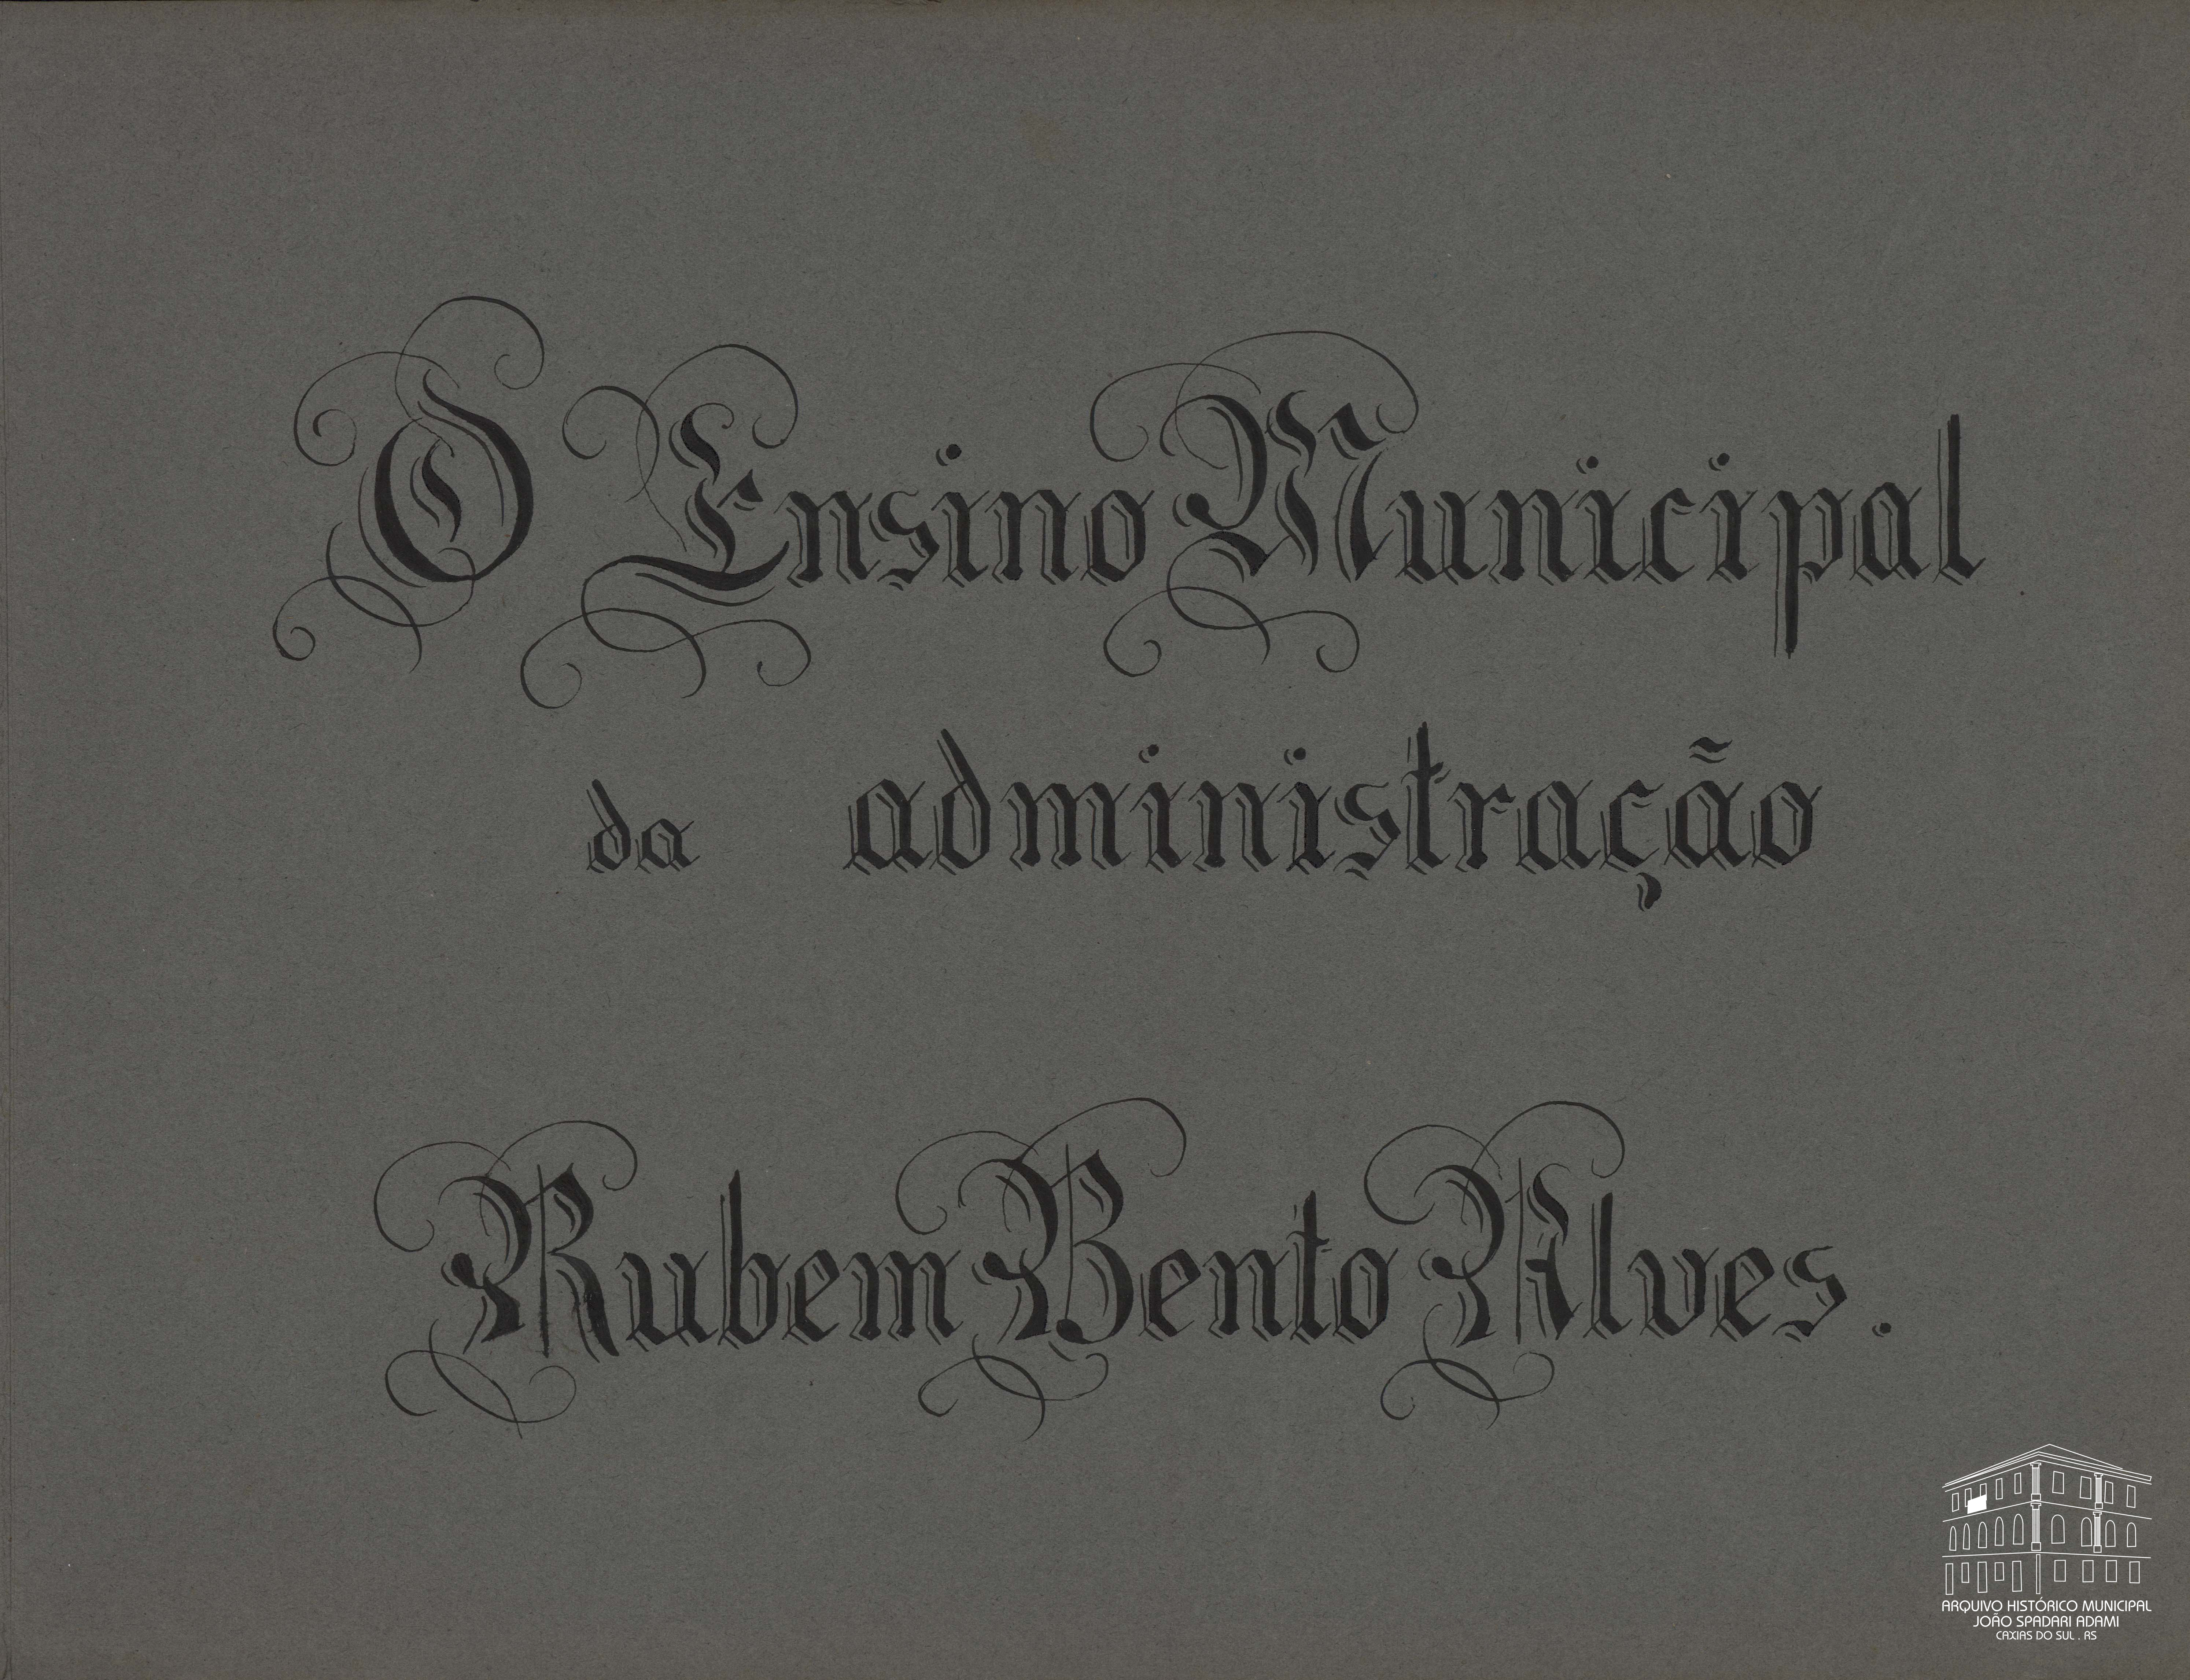 O Ensino Municipal
da administração
Rubem Bento Alves.
ARQUIVO HISTÓRICO MUNICIPAL
JOÃO SPADARI ADAMI
CAXIAS DO SUL . RS